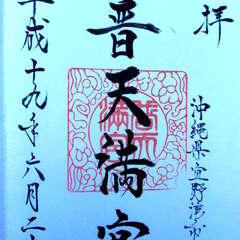 拝
沖縄県宜野湾市
普天満宮
普天満宮
平成十九年六月二十